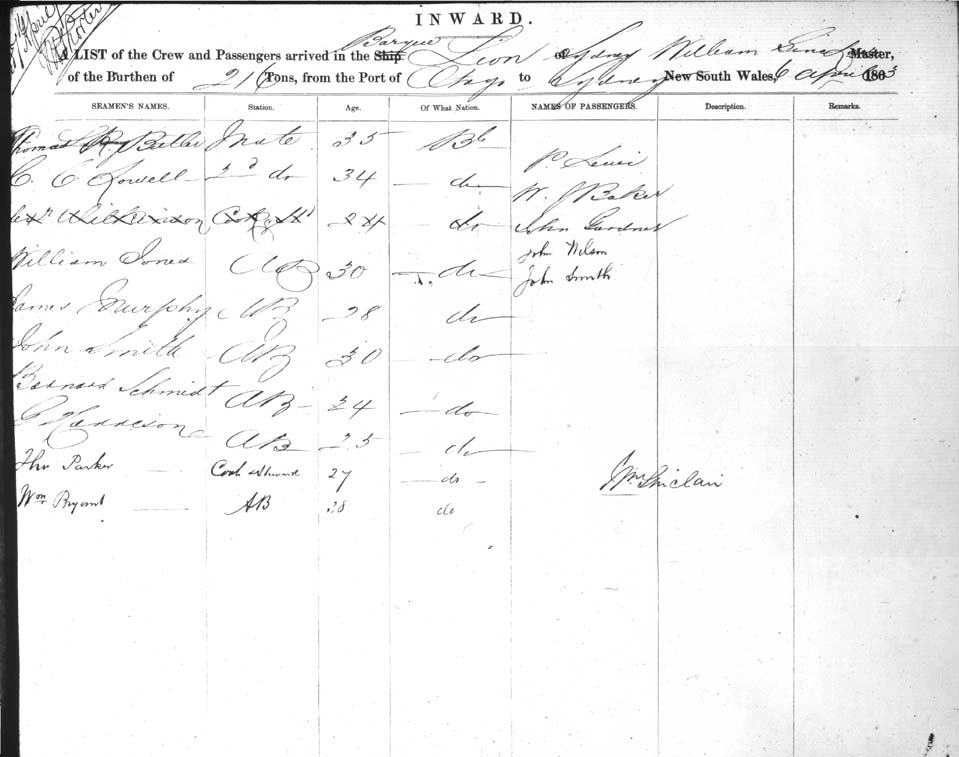 7th April
Porter
INWARD.
A LIST of the Crew and Passengers arrived in the Ship Barque Lion of Sydney William Master,
of the Burthen of 216 Tons, from the Port of Otago to Sydney New South Wales, 6 April 1863
SEAMEN'S NAMES. Station. Age. Of What Nation. NAMES OF PASSENGERS. Description. Remarks.
Thomas Butler Mate 35 Bh P. Levi
C. C. Lowell 2nd do 34 do W. J Baker
Wilkinson Cook & St 24 do John Gardner
John Nelson
William Jones AB 30 do John Smith
James Murphy AB 28 do
John Smith AB 30 do
Bernard Schmidt AB 24 do
G Harrison AB 25 do
Thos Parker Cook & Steward 27 do Wm Sinclair
Wm Bryant AB 38 do